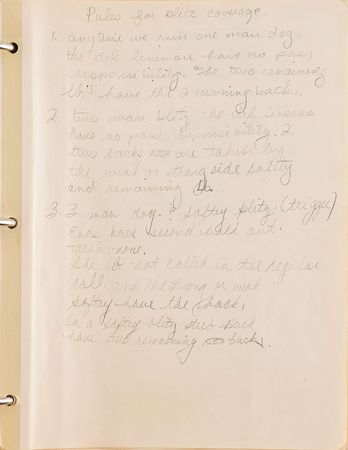 Rules for blitz coverage.
1. anytime we run one man dog
the def. lineman have no pass
responsibility. The two remaining
LB's have the 2 running backs.
2. two man blitz the def lineman
have no pass responsibility. 2
two backs are taken by
the weak or strong side safety
and remaining Lb.
3. 3 man dog. & safty blitz. (trigger)
Ends have second back out.
tackles-none.
The LB. not called in the regular
call and the strong or weak
safty have the back.
In a safty blitz
have two remaining backs.